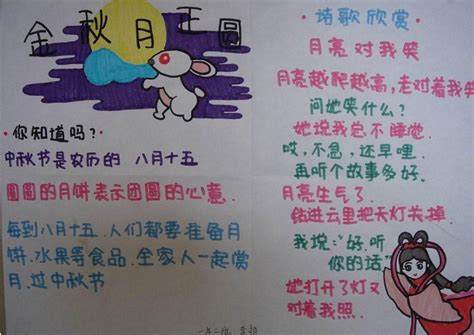 金秋月正圆
·你知道吗?·
中秋节是农历的 八月十五
圆圆的月饼表示团圆的心意.
每到八月十五.人们都要准备月
饼.水果等食品.全家人一起赏
月.过中秋节
·诗歌欣赏·
月亮对我笑
月亮越爬越高,走对着我笑
问她笑什么?
她说我总不睡觉.
哎,不急,还早哩.
再听个故事多好.
月亮生气了.
钻进云里把天灯关掉.
我说:"好.听
你的话"
她打开了灯又
对着我照.
一年二班